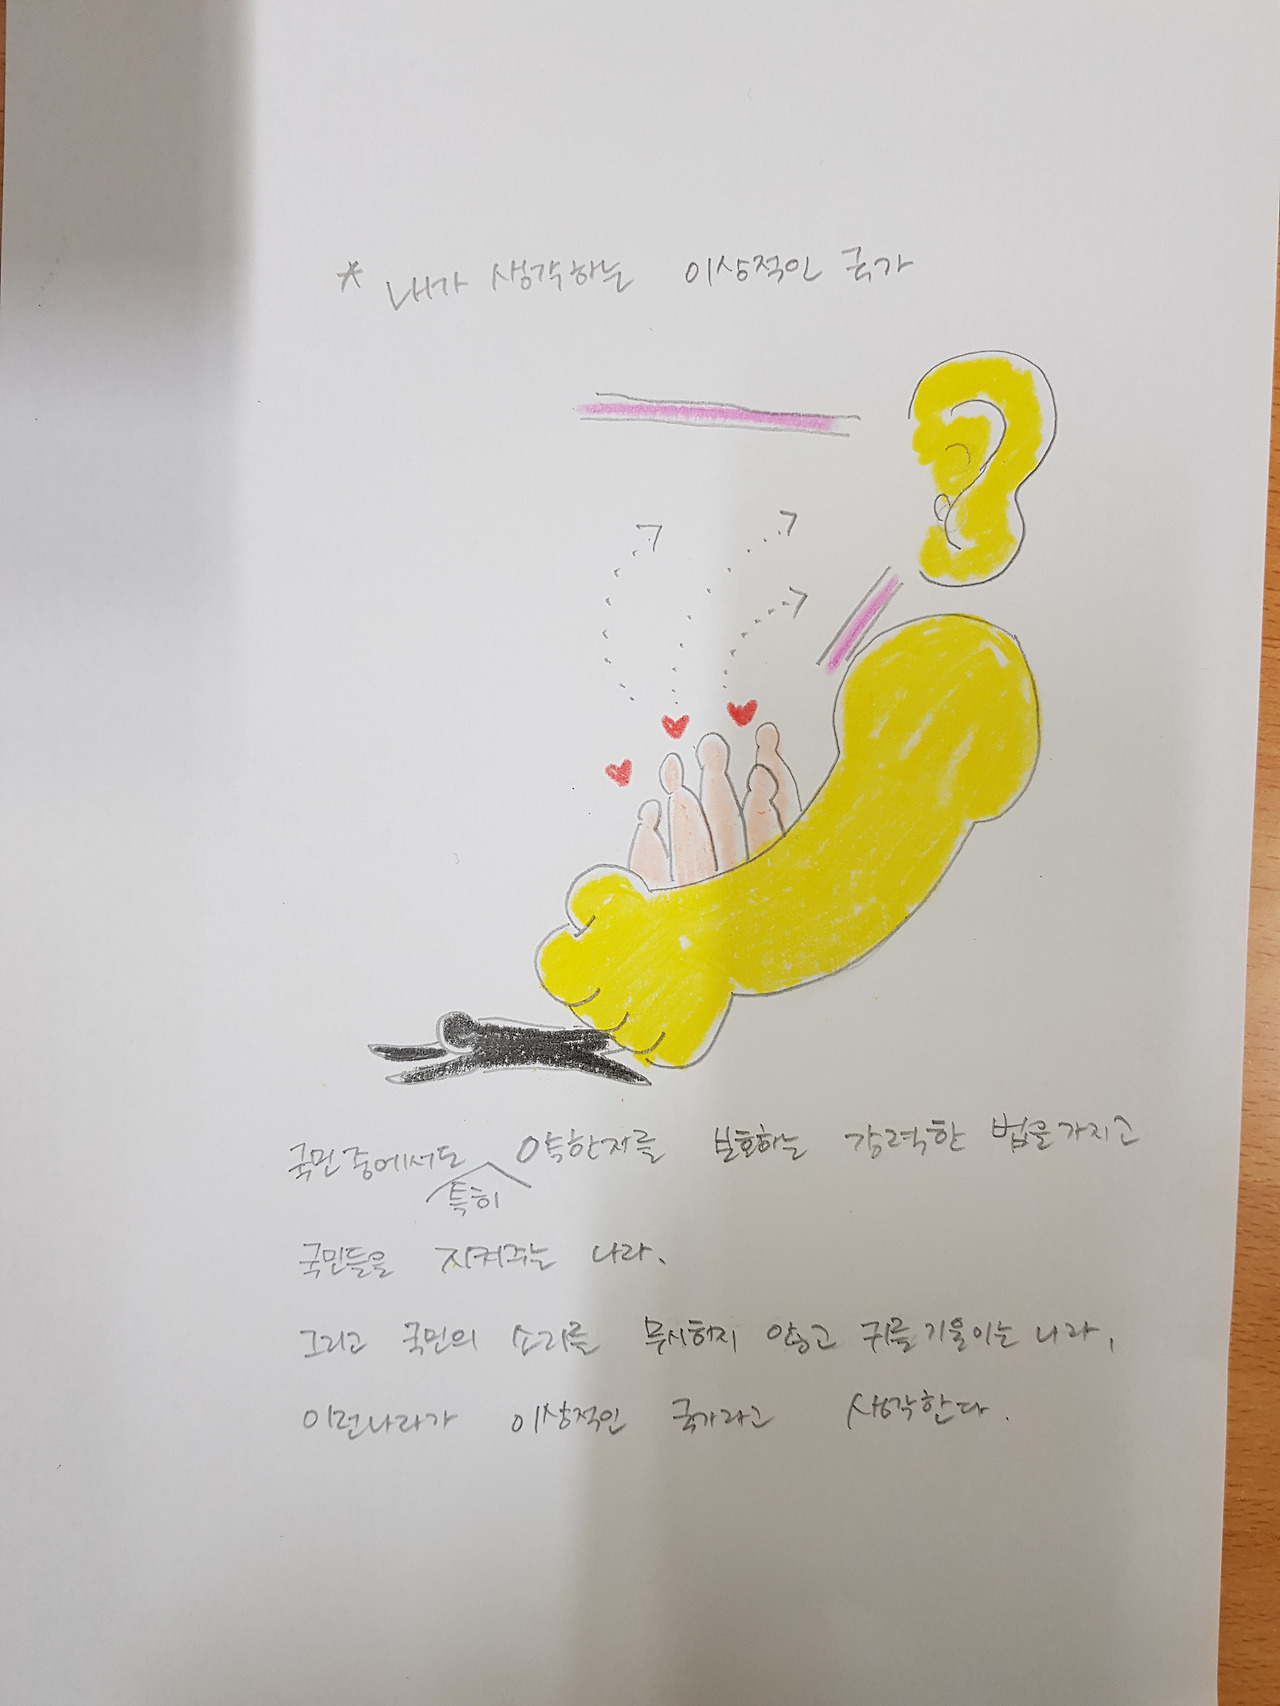 * 내가 생각하는 이상적인 국가
국민 중에서도 특히 약한자를 보호하는 강력한 법을 가지고
국민들을 지켜주는 나라.
그리고 국민의 소리를 무시하지 않고 귀를 기울이는 나라,
이런나라가 이상적인 국가라고 생각한다.